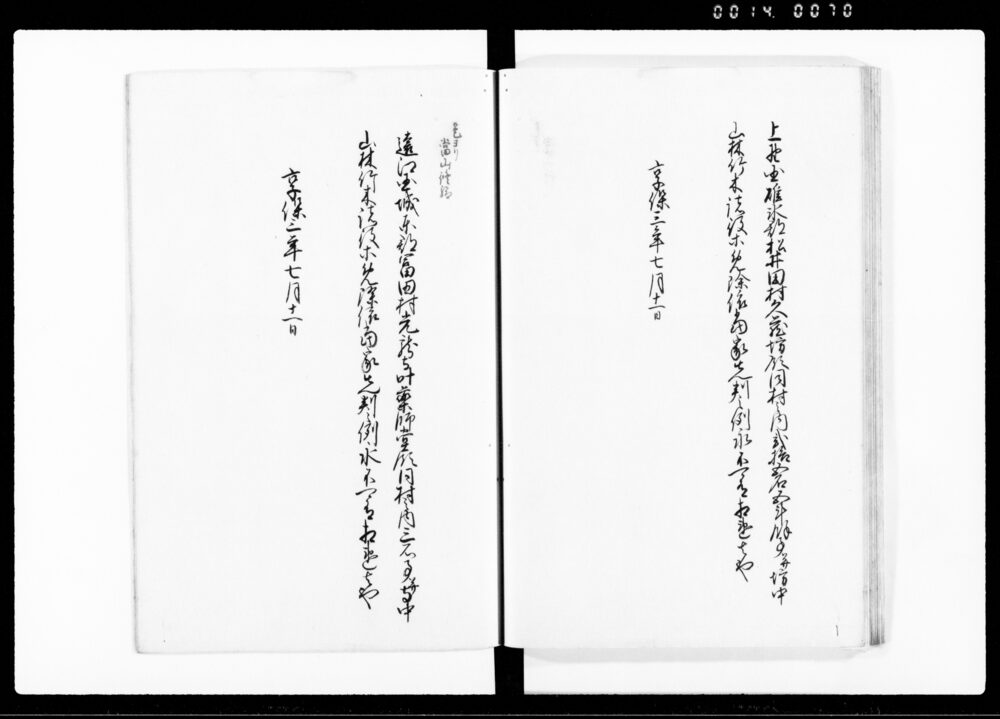 0014 0070
上野国碓氷郡松井田村久蔵坊領同村内弐拾石五斗余事并坊中
山林竹木諸役等免除依当家先判例永不可有相違者也
享保三年七月十一日
是ヨリ
当山修験
遠江国城東郡富田村光龍寺叶薬師堂領同村内三石事并寺中
山林竹木諸役等免除依当家先判例永不可有相違者也
享保三年七月十一日